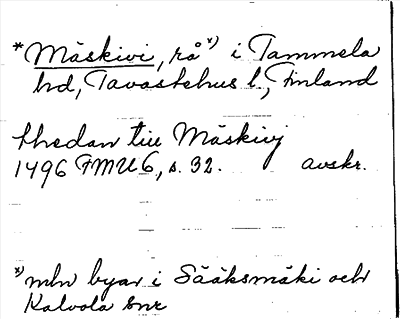 *Mäskivi, rå x) i Tammela
hd, Tavastehus l., Finland
thedan till Mäskivj
1496 FMU6, s. 32. avskr.
x) mln byar i Sääksmäki och
Kalvola snr